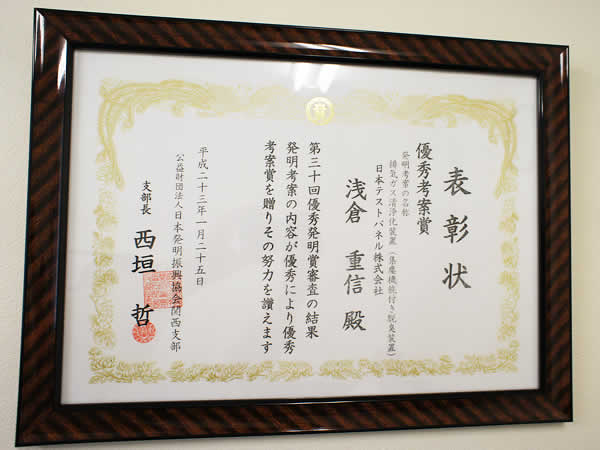 表彰状
優秀考案賞
発明考案の名称
排気ガス清浄化装置(集塵機能付き脱臭装置)
日本テストパネル株式会社
浅倉 重信 殿
第三十回優秀発明賞審査の結果
発明考案の内容が優秀により優秀
考案賞を贈りその努力を讃えます
平成二十三年一月二十五日
公益財団法人日本発明振興協会関西支部
支部長 西垣 哲